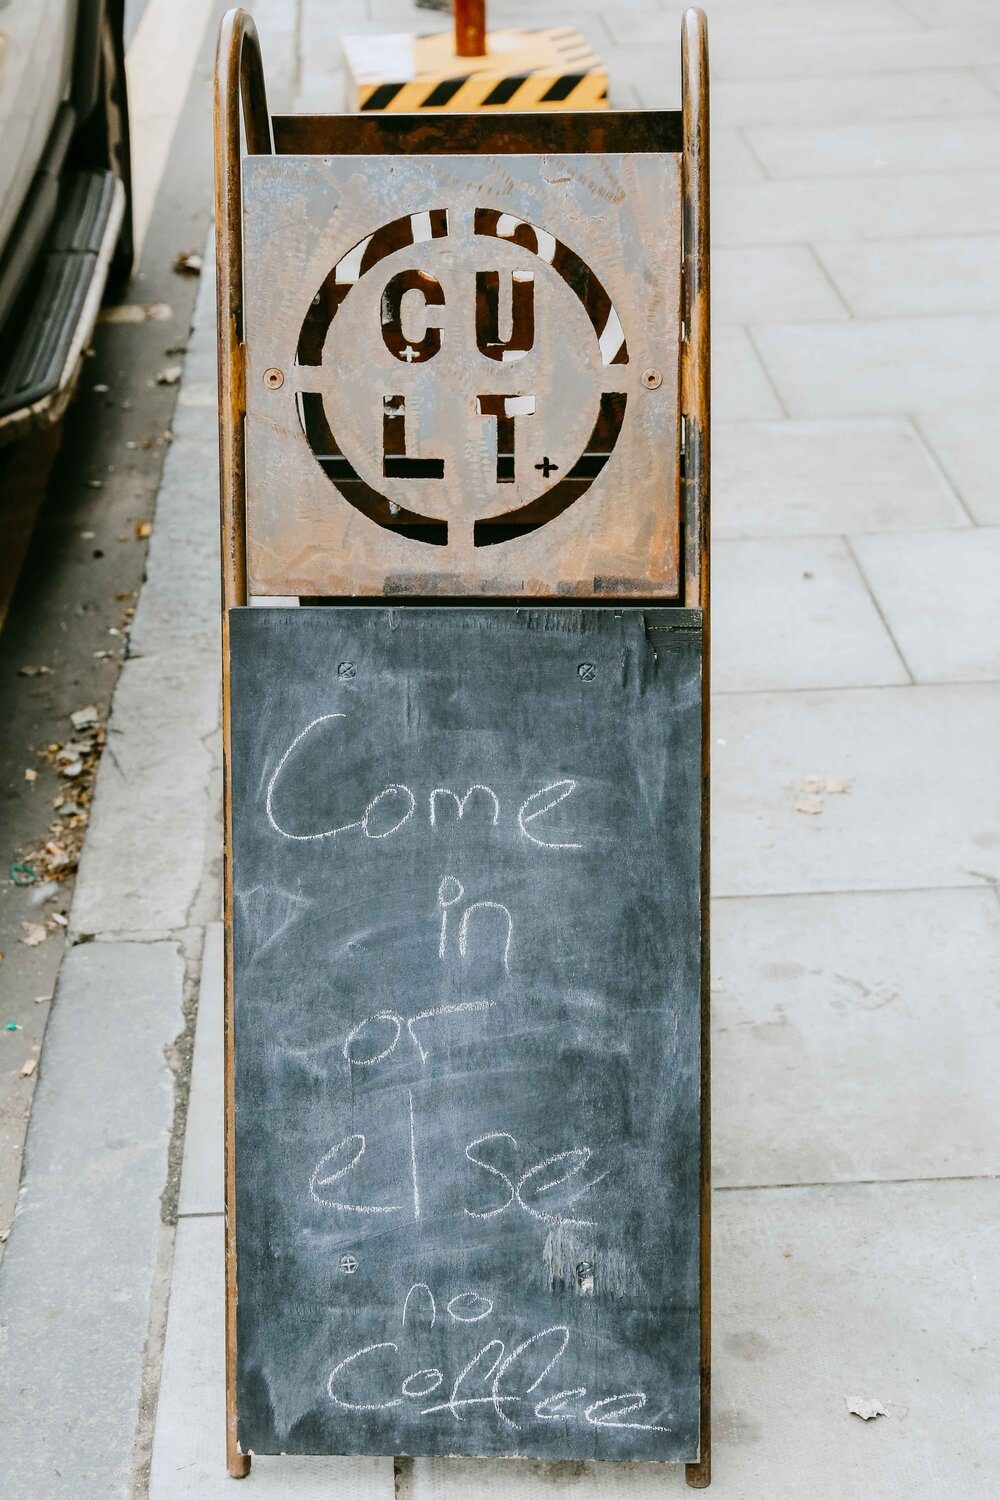 CU
LT+
Come
in
or
else
no
Coffee